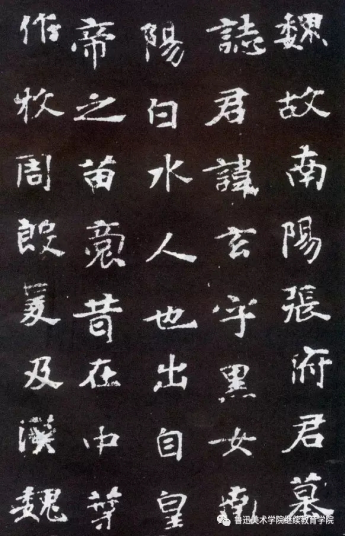 魏故南陽張府君墓
誌君諱玄字黑女南
陽白水人也出自皇
帝之苗裔昔在中葉
作牧周殷爰及漢魏
鲁迅美术学院继续教育学院